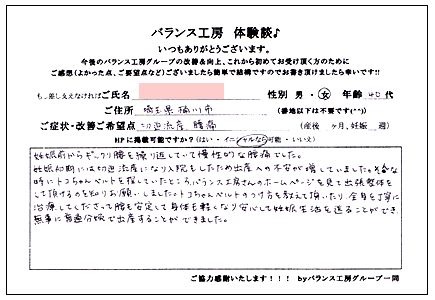 バランス工房 体験談♪
いつもありがとうございます。
今後のバランス工房グループの改善&向上、これから初めてお受け頂く方のために
ご感想(よかった点、ご要望点など)ございましたら簡単で結構ですのでお書き頂けましたら幸いです!!
もし差し支えなければご氏名 性別 男・女 年齢 40代
ご住所 埼玉県桶川市 (番地以下は不要です(^^))
ご症状・改善ご希望点 切迫流産 腰痛 (産後 ヶ月、妊娠 週)
HPに掲載可能ですか?(はい・イニシャルなら可能・いいえ)
妊娠前からギックリ腰を繰り返していて慢性的な腰痛でした。
妊娠初期には切迫流産になり入院もしたため出産への不安が増していました。そんな
時にトコちゃんベルトを探していたところ、バランス工房さんのホームページを見て出張整体を
して頂けるのを知りお願いしました。トコちゃんベルトのつけ方を教えて頂いたり、全身を丁寧に
治療してくださって腰も安定して身体も軽くなり安心して妊娠生活を送ることができ、
無事に普通分娩で出産することができました。
ご協力感謝いたします!!! byバランス工房グループ一同